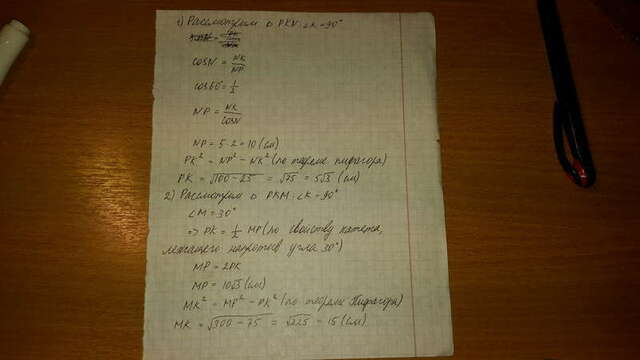 1) Рассмотрим △ PKN: ∠K=90°
cosN = NK/NP
cos60° = 1/2
NP = NK/cosN
NP = 5·2 = 10 (см)
PK² = NP² − NK² (по теореме Пифагора)
PK = √100−25 = √75 = 5√3 (см)
2) Рассмотрим △ PKM: ∠K=90°
∠M = 30°
=> PK = 1/2 MP (по свойству катета,
лежащего напротив угла 30°)
MP = 2PK
MP = 10√3 (см)
MK² = MP² − PK² (по теореме Пифагора)
MK = √300−75 = √225 = 15 (см)